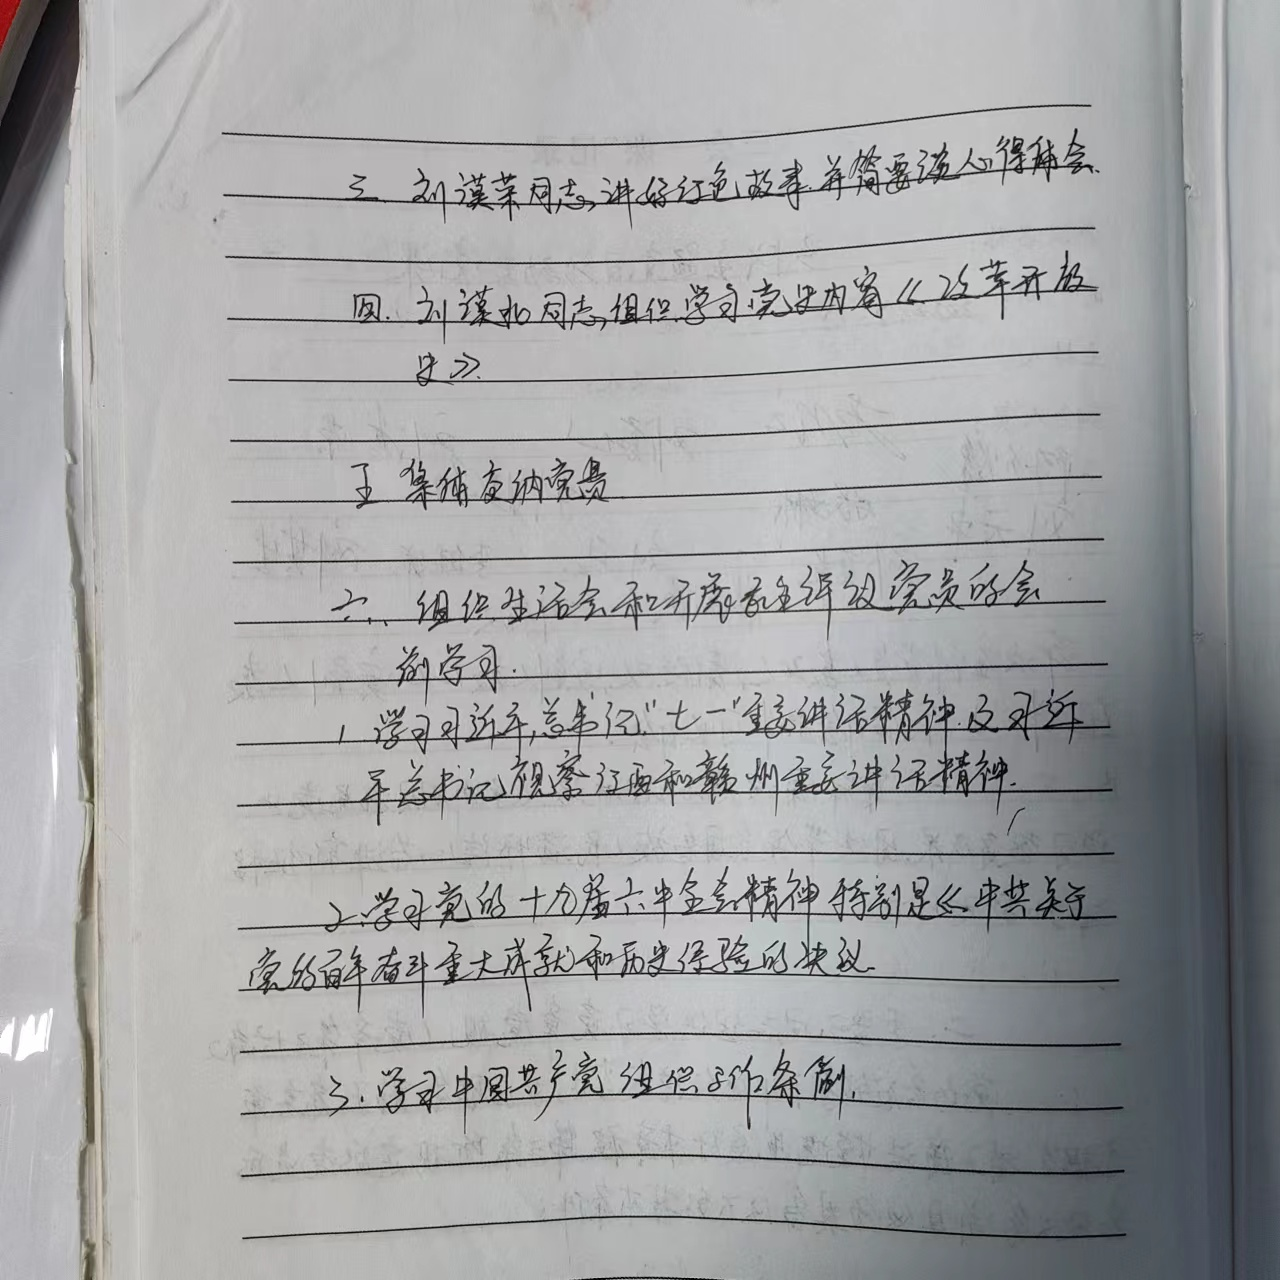 三、刘谟荣同志,讲好红色故事.并简要谈心得体会.
四、刘谟 同志,组织学习党史内容《改革开放
史》.
五 集体交纳党费
六、组织生活会和开展民主评议党员的会
前学习.
1 学习习近平,总书记“七一”重要讲话精神.及习近
平总书记视察江西和赣州重要讲话精神.
2.学习党的十九届六中全会精神 特别是《中共关于
党的百年奋斗重大成就和历史经验的决议.
3.学习中国共产党组织工作条例.